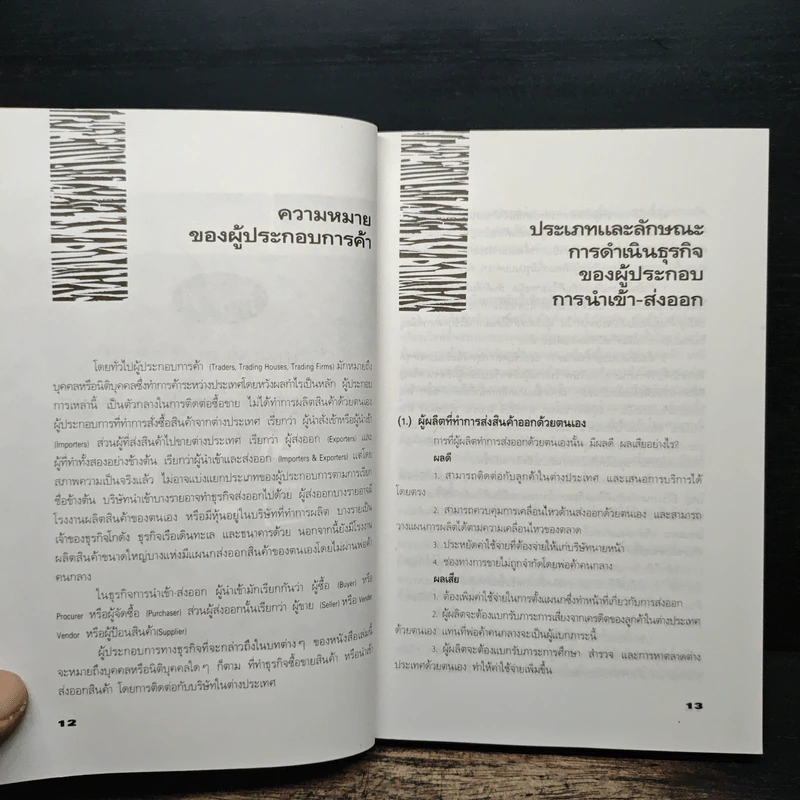 ความหมาย
ของผู้ประกอบการค้า
โดยทั่วไปผู้ประกอบการค้า (Traders, Trading Houses, Trading Firms) มักหมายถึง
บุคคลหรือนิติบุคคลซึ่งทำการค้าระหว่างประเทศโดยหวังผลกำไรเป็นหลัก ผู้ประกอบ
การเหล่านี้ เป็นตัวกลางในการติดต่อซื้อขาย ไม่ได้ทำการผลิตสินค้าด้วยตนเอง
ผู้ประกอบการที่ทำการสั่งซื้อสินค้าจากต่างประเทศ เรียกว่า ผู้นำสั่งเข้าหรือผู้นำเข้า
(Importers) ส่วนผู้ที่ส่งสินค้าไปขายต่างประเทศ เรียกว่า ผู้ส่งออก (Exporters) และ
ผู้ที่ทำทั้งสองอย่างข้างต้น เรียกว่าผู้นำเข้าและส่งออก (Importers & Exporters) แต่โดย
สภาพความเป็นจริงแล้ว ไม่อาจแบ่งแยกประเภทของผู้ประกอบการตามการเรียก
ชื่อข้างต้น บริษัทนำเข้าบางรายอาจทำธุรกิจส่งออกไปด้วย ผู้ส่งออกบางรายอาจมี
โรงงานผลิตสินค้าของตนเอง หรือมีหุ้นอยู่ในบริษัทที่ทำการผลิต บางรายเป็น
เจ้าของธุรกิจโกดัง ธุรกิจเรือเดินทะเล และธนาคารด้วย นอกจากนี้ยังมีโรงงาน
ผลิตสินค้าขนาดใหญ่บางแห่งมีแผนกส่งออกสินค้าของตนเองโดยไม่ผ่านพ่อค้า
คนกลาง
ในธุรกิจการนำเข้า-ส่งออก ผู้นำเข้ามักเรียกกันว่า ผู้ซื้อ (Buyer) หรือ
Procurer หรือผู้จัดซื้อ (Purchaser) ส่วนผู้ส่งออกนั้นเรียกว่า ผู้ขาย (Seller) หรือ Vender
Vendor หรือผู้ป้อนสินค้า(Supplier)
ผู้ประกอบการทางธุรกิจที่จะกล่าวถึงในบทต่างๆ ของหนังสือเล่มนี้
จะหมายถึงบุคคลหรือนิติบุคคลใดๆ ก็ตาม ที่ทำธุรกิจซื้อขายสินค้า หรือนำเข้า
ส่งออกสินค้า โดยการติดต่อกับบริษัทในต่างประเทศ
12
ประเภทและลักษณะ
การดำเนินธุรกิจ
ของผู้ประกอบ
การนำเข้า-ส่งออก
(1.) ผู้ผลิตที่ทำการส่งสินค้าออกด้วยตนเอง
การที่ผู้ผลิตทำการส่งออกด้วยตนเองนั้น มีผลดี ผลเสียอย่างไร?
ผลดี
1. สามารถติดต่อกับลูกค้าในต่างประเทศ และเสนอการบริการได้
โดยตรง
2. สามารถควบคุมการเคลื่อนไหวด้านส่งออกด้วยตนเอง และสามารถ
วางแผนการผลิตได้ตามความเคลื่อนไหวของตลาด
3. ประหยัดค่าใช้จ่ายที่ต้องจ่ายให้แก่บริษัทนายหน้า
4. ช่องทางการขายไม่ถูกจำกัดโดยพ่อค้าคนกลาง
ผลเสีย
1. ต้องเพิ่มค่าใช้จ่ายในการตั้งแผนกซึ่งทำหน้าที่เกี่ยวกับการส่งออก
2. ผู้ผลิตจะต้องแบกรับภาระการเสี่ยงจากเครดิตของลูกค้าในต่างประเทศ
ด้วยตนเอง แทนที่พ่อค้าคนกลางจะเป็นผู้แบกภาระนี้
3. ผู้ผลิตจะต้องแบกรับภาระการศึกษา สำรวจ และการหาตลาดต่าง
ประเทศด้วยตนเอง ทำให้ค่าใช้จ่ายเพิ่มขึ้น
13